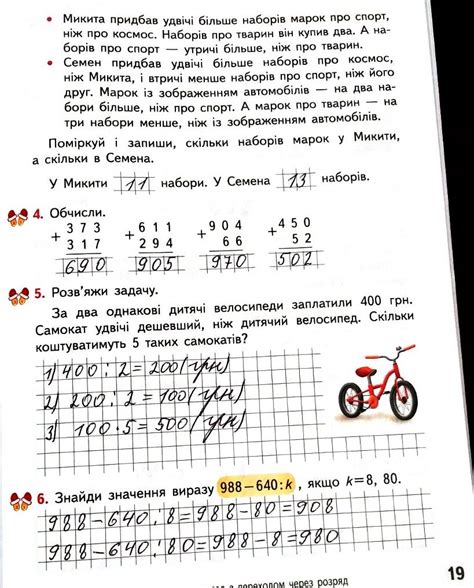 • Микита придбав удвічі більше наборів марок про спорт,
ніж про космос. Наборів про тварин він купив два. А на-
борів про спорт — утричі більше, ніж про тварин.
• Семен придбав удвічі більше наборів про космос,
ніж Микита, і втричі менше наборів про спорт, ніж його
друг. Марок із зображенням автомобілів — на два на-
бори більше, ніж про спорт. А марок про тварин — на
три набори менше, ніж із зображенням автомобілів.
Поміркуй і запиши, скільки наборів марок у Микити,
а скільки в Семена.
У Микити 11 набори. У Семена 13 наборів.
4. Обчисли.
+ 373 + 611 + 904 + 450
317 294 66 52
690 905 970 502
5. Розв'яжи задачу.
За два однакові дитячі велосипеди заплатили 400 грн.
Самокат удвічі дешевший, ніж дитячий велосипед. Скільки
коштуватимуть 5 таких самокатів?
1) 400 : 2 = 200 (грн)
2) 200 : 2 = 100 (грн)
3) 100 · 5 = 500 (грн)
6. Знайди значення виразу 988 – 640 : k , якщо k = 8, 80.
988 – 640 : 8 = 988 – 80 = 908
988 – 640 : 80 = 988 – 8 = 980
19
з переходом через розряд